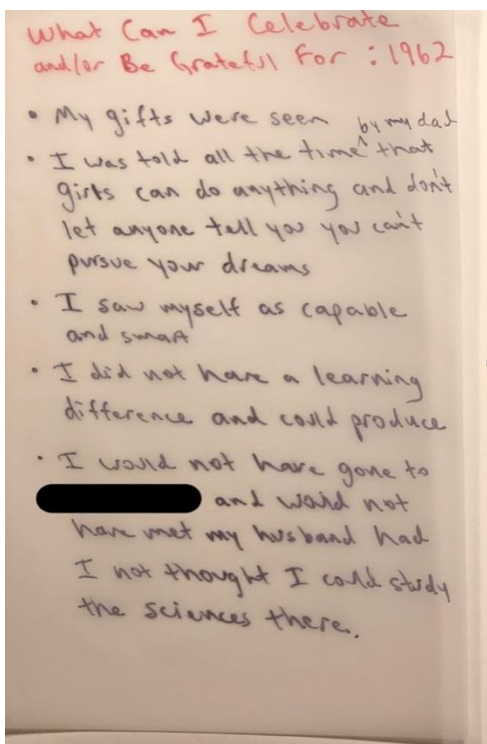 What Can I Celebrate
and/or Be Grateful For : 1962
• My gifts were seen
• I was told all the time ^by my dad that
girls can do anything and don't
let anyone tell you you can't
pursue your dreams
• I saw myself as capable
and smart
• I did not have a learning
difference and could produce
• I would not have gone to
and would not
have met my husband had
I not thought I could study
the sciences there.